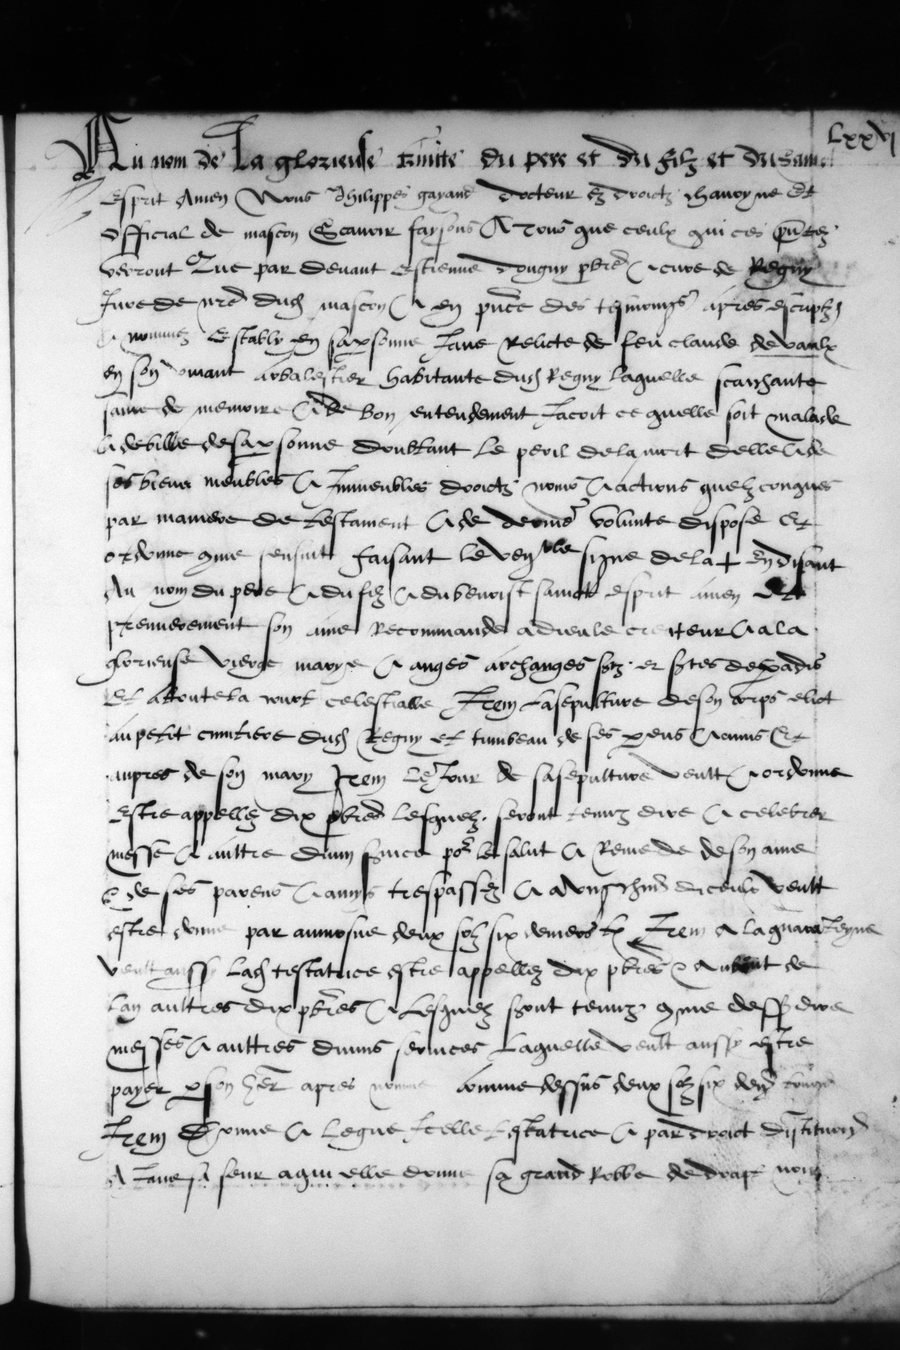 LXXVI
Au nom de La glorieuse trinite du pere et du filz et du sainct
Esprit Amen Nous Philippes gayand docteur es droictz chanoyne et
official de mascon Scavoir faysons A tous que ceulx qui ces pntes
verront Que par devant Estienne douguy pbre & cure de Regny
Jure de nre dicte mascon & en pnce des tesmoings apres escriptz
& nommez Establye en sa personne Jane relicte de feu claude de vaulx
en son vivant arbalestier habitante dudict Regny laquelle saichante
saine de memoire & de bon entendement Jacoit ce quelle soit malade
& debille de sa personne doubtant le peril de la mort delle & de
ses biens meubles & Immeubles droictz noms & actions quelzconques
par maniere de testament & de derniere volunte dispose et
ordonne comme sensuit faisant le venerable signe de la + En disant
Au nom du pere & du filz & du benoist sainct esprit amen Et
premierement son ame Recommande a dieu le createur & a la
glorieuse vierge marye & anges archanges sainctz et sainctes de paradis
Et a toute la court celestialle Item la sepulture de son corps eslict
au petit cimitiere dudict Regny et tumbeau de ses parens & amis Et
aupres de son mary Item Le Jour de sa sepulture veult & ordonne
Estre appellez dix pbres Lesquelz seront tenuz dire & celebrer
messe & aultre divin service por le salut & Remede de son ame
& de ses parens & amys trespassez & a ung chun diceulx veult
estre donne par aumosne deux solz six deniers tz Item A la quaranteyne
veult aussy ladicte testatrice estre appellez dix pbres & au bout de
lan aultres dix pbres & Lesquelz seront tenuz comme dessus dire
messes & aultres divins services Laquelle veult aussy estre
payer par son her apres nomme comme dessus deux solz six deniers
Item Donne & Legue Icelle testatrice & par droict dinstitution
A Jane sa seur a qui elle donne sa grand Robbe de drap noir